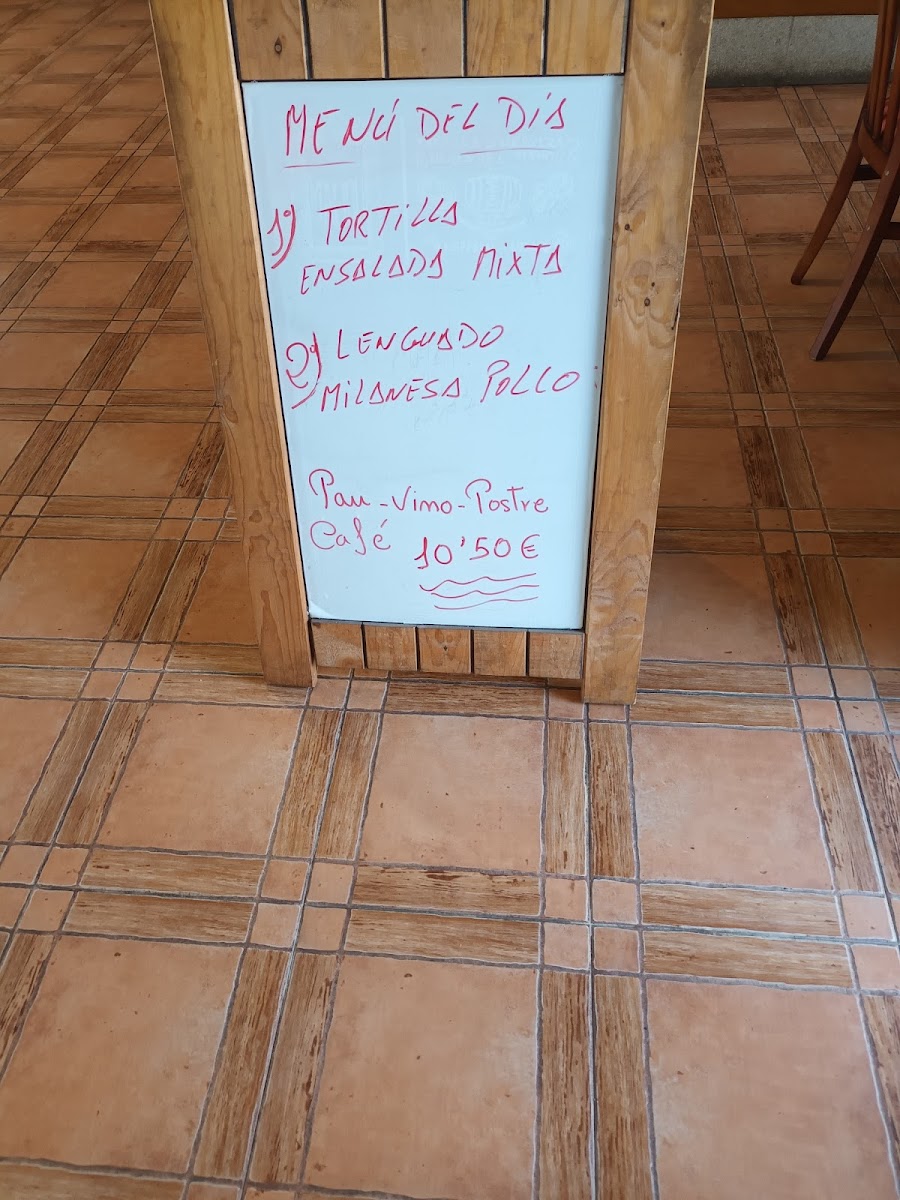 MENÚ DEL DÍA
1º) TORTILLA
ENSALADA MIXTA
2º) LENGUADO
MILANESA POLLO
Pan-Vino-Postre
Café 10'50€